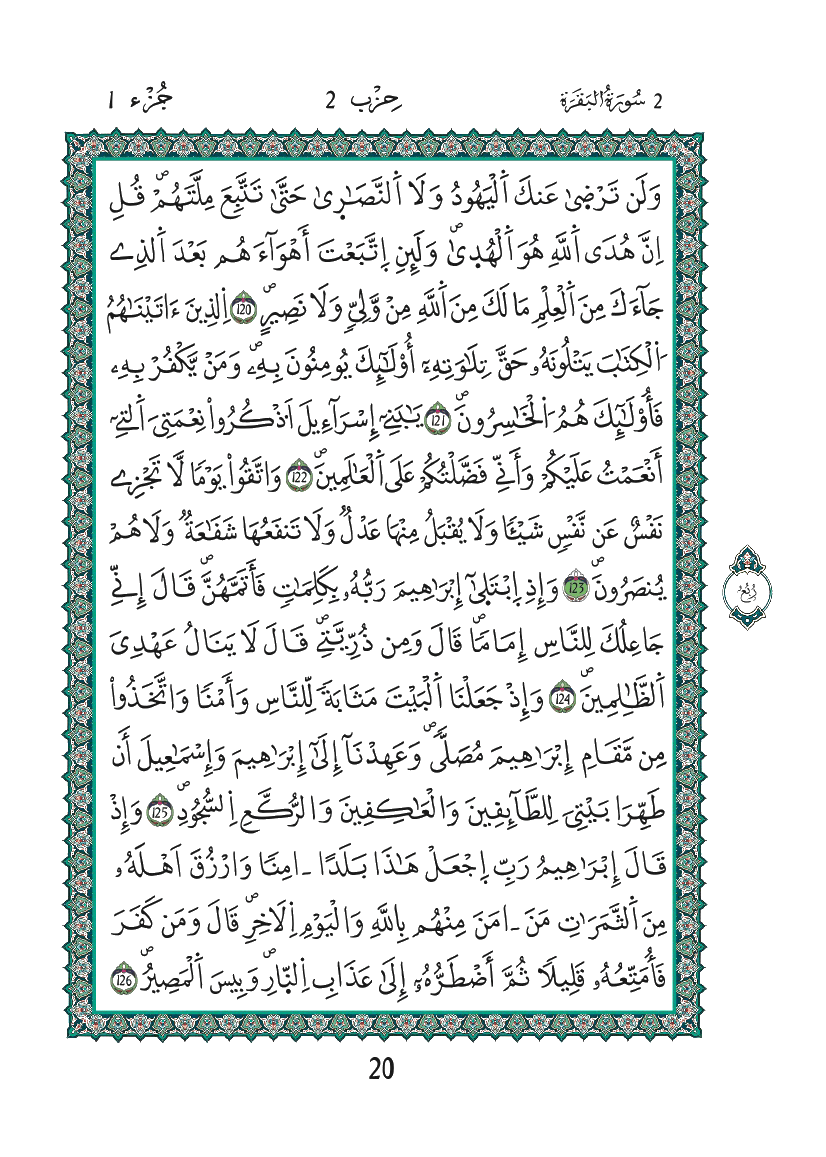 2 سُورَةُ الْبَقَرَة حِزْب 2 جُزْء 1
وَلَن تَرْض۪يٰ عَنكَ اَ۬لْيَهُودُ وَلَا اَ۬لنَّصَٰر۪يٰ حَتَّىٰ تَتَّبِعَ مِلَّتَهُمْۖ قُلِ
اِنَّ هُدَى اَ۬للَّهِ هُوَ اَ۬لْهُد۪يٰۖ وَلَئِنِ اِ۪تَّبَعْتَ أَهْوَآءَهُم بَعْدَ اَ۬لذِے
جَآءَكَ مِنَ اَ۬لْعِلْمِ مَا لَكَ مِنَ اَ۬للَّهِ مِنْ وَّلِيّٖ وَلَا نَصِيرٍۖ 120 اِ۬لذِينَ ءَاتَيْنَٰهُمُ
اُ۬لْكِتَٰبَ يَتْلُونَهُۥ حَقَّ تِلَٰوَتِهِۦٓ أُوْلَٰٓئِكَ يُومِنُونَ بِهِۦۖ وَمَنْ يَّكْفُرْ بِهِۦ
فَأُوْلَٰٓئِكَ هُمُ اُ۬لْخَٰسِرُونَۖ 121 يَٰبَنِےٓ إِسْرَآءِيلَ اَ۟ذْكُرُواْ نِعْمَتِيَ اَ۬لتِےٓ
أَنْعَمْتُ عَلَيْكُمْ وَأَنِّے فَضَّلْتُكُمْ عَلَى اَ۬لْعَٰلَمِينَۖ 122 وَاتَّقُواْ يَوْماٗ لَّا تَجْزِے
نَفْسٌ عَن نَّفْسٖ شَيْـٔاٗ وَلَا يُقْبَلُ مِنْهَا عَدْلٞ وَلَا تَنفَعُهَا شَفَٰعَةٞ وَلَا هُمْ
يُنصَرُونَۖ 123 وَإِذِ اِ۪بْتَل۪يٰٓ إِبْرَٰهِيمَ رَبُّهُۥ بِكَلِمَٰتٖ فَأَتَمَّهُنَّۖ قَالَ إِنِّے
جَاعِلُكَ لِلنَّاسِ إِمَاماٗۖ قَالَ وَمِن ذُرِّيَّتِےۖ قَالَ لَا يَنَالُ عَهْدِيَ
اَ۬لظَّٰلِمِينَۖ 124 وَإِذْ جَعَلْنَا اَ۬لْبَيْتَ مَثَابَةٗ لِّلنَّاسِ وَأَمْناٗ وَاتَّخَذُواْ
مِن مَّقَامِ إِبْرَٰهِيمَ مُصَلّيٗۖ وَعَهِدْنَآ إِلَىٰٓ إِبْرَٰهِيمَ وَإِسْمَٰعِيلَ أَن
طَهِّرَا بَيْتِيَ لِلطَّآئِفِينَ وَالْعَٰكِفِينَ وَالرُّكَّعِ اِ۬لسُّجُودِۖ 125 وَإِذْ
قَالَ إِبْرَٰهِيمُ رَبِّ اِ۪جْعَلْ هَٰذَا بَلَداً اٰمِناٗ وَارْزُقَ اَهْلَهُۥ
مِنَ اَ۬لثَّمَرَٰتِ مَنَ اٰمَنَ مِنْهُم بِاللَّهِ وَالْيَوْمِ اِ۬لَاخِرِۖ قَالَ وَمَن كَفَرَ
فَأُمَتِّعُهُۥ قَلِيلاٗ ثُمَّ أَضْطَرُّهُۥٓ إِلَىٰ عَذَابِ اِ۬لنّ۪ارِۖ وَبِيسَ اَ۬لْمَصِيرُۖ 126
رُبُع
20